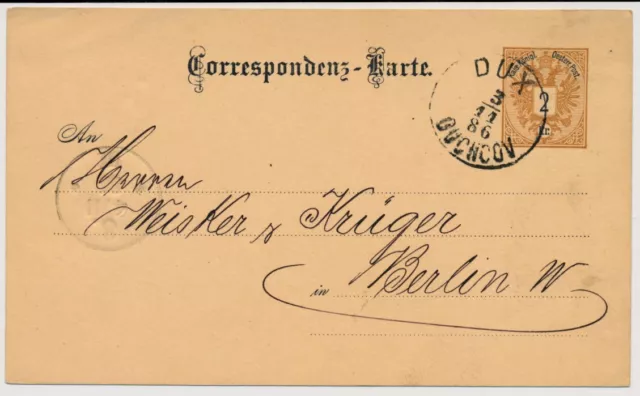 Correspondenz-Karte.
DUX
3
11
86
DUCHCOV
2
kr.
An
Herren
Weisker & Krüger
in Berlin W